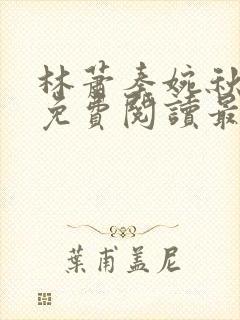 林蕭秦婉秋
免費閱讀最
葉甫蓋尼